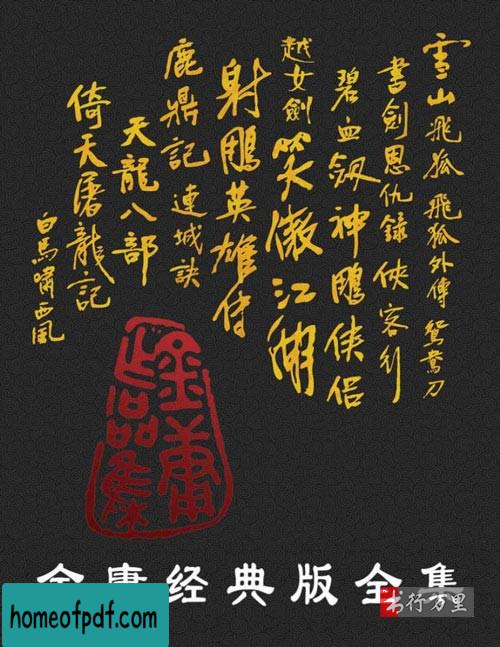 雪山飛狐 飛狐外傳 鴛鴦刀
書劍恩仇錄 俠客行
碧血劔 神鵰俠侶
越女劍 笑傲江湖
射鵰英雄传
鹿鼎記 連城訣
天龍八部
倚天屠龍記
白馬嘯西風
金庸作品集
金庸经典版全集
homeofpdf.com
书行万里